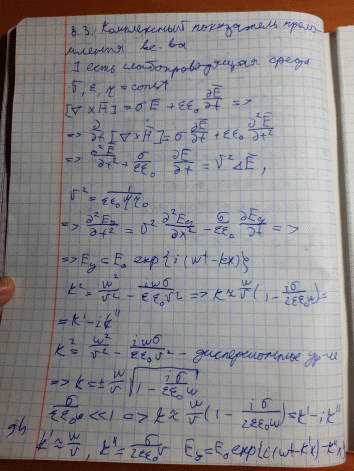 8.3. Комплексный показатель прело-
мления ве-ва
] есть слабопроводящая среда
σ, ε, η = const
[∇ × H̄] = σĒ + εε₀ ∂Ē/∂t =>
=> ∂/∂t [∇ × H̄] = σ ∂Ē/∂t + εε₀ ∂²Ē/∂t²
=> ∂²Ē/∂t² + σ/εε₀ ∂Ē/∂t = v² ΔĒ,
v² = 1/εε₀ηη₀
=> ∂²Ey/∂t² = v² ∂²Ey/∂x² - σ/εε₀ ∂Ey/∂t =>
=> Ey = E₀ exp{i(wt-kx)}
k² = w²/v² - iwσ/εε₀v² => k ≈ w/v (1 - iσ/2εε₀w) =
= k' - ik"
k² = w²/v² - iwσ/εε₀v² - дисперсионное ур-ие
=> k = ± w/v √(1 - iσ/εε₀w)
σ/εε₀w << 1 => k ≈ w/v (1 - iσ/2εε₀w) = k' - ik"
k' ≈ w/v, k" = σ/2εε₀v Ey = E₀exp{i(wt-k'x)-k"x